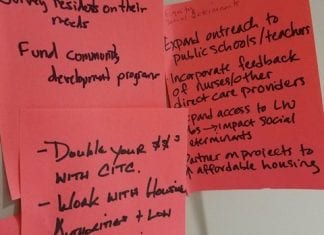 Survey residents on their
needs
Fund community
development program
Equity
social determinants
Expand outreach to
public schools/teachers
Incorporate feedback
of nurses/other
direct care providers
Expand access to LIW
→ impact social
determinants
Partner on projects to
↑ affordable housing
- DOUBLE YOUR $$'s
WITH CITC.
- WORK WITH HOUSING
AUTHORITIES + LOW